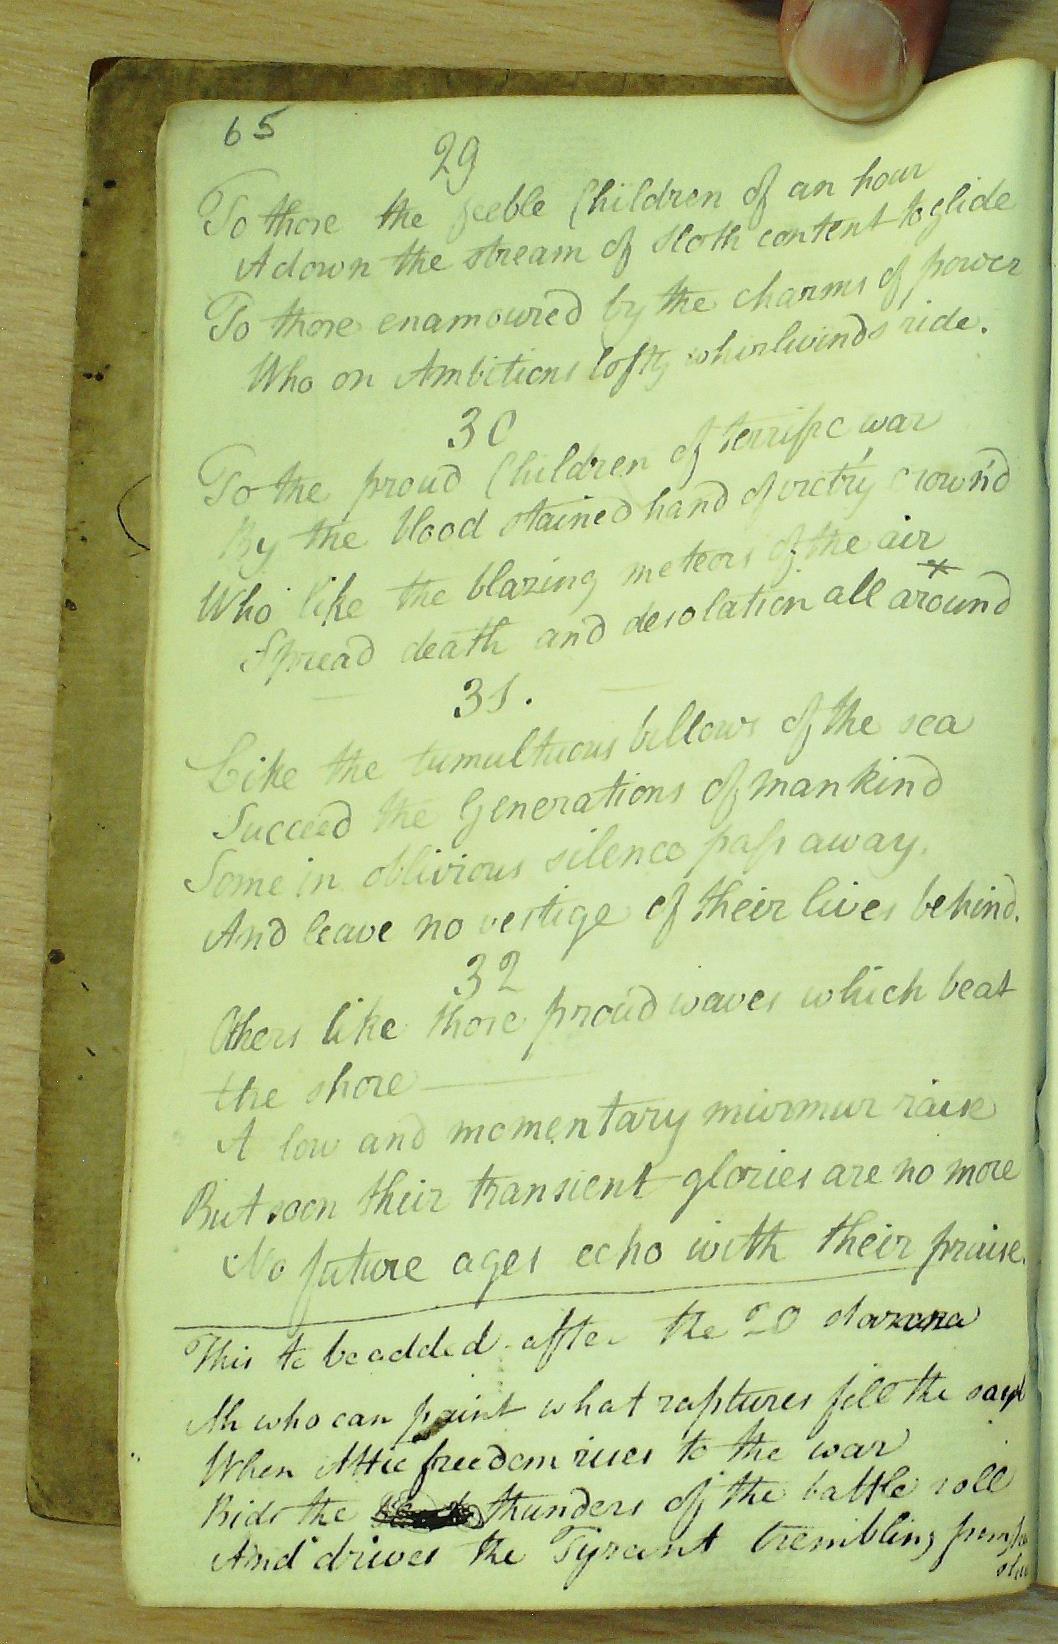 65
29
To those the feeble Children of an hour
Adown the stream of sloth content to glide
To those enamoured by the charms of power
Who on Ambitions lofty whirlwinds ride.
30
To the proud Children of terrific war
By the blood stained hand of vict'ry crown'd
Who like the blazing meteors of the air
Spread death and desolation all around
31.
Like the tumultuous billows of the sea
Succeed the Generations of mankind
Some in oblivious silence paſs away.
And leave no vestige of their lives behind.
32
Others like those proud waves which beat
the shore
A low and momentary murmur raise
But soon their transient glories are no more
No future ages echo with their praise.
This to be added after the 20
Ah who can paint what raptures fill the
When Attic freedom rises to the war
Bids the thunders of the battle roll
And drives the Tyrant trembling